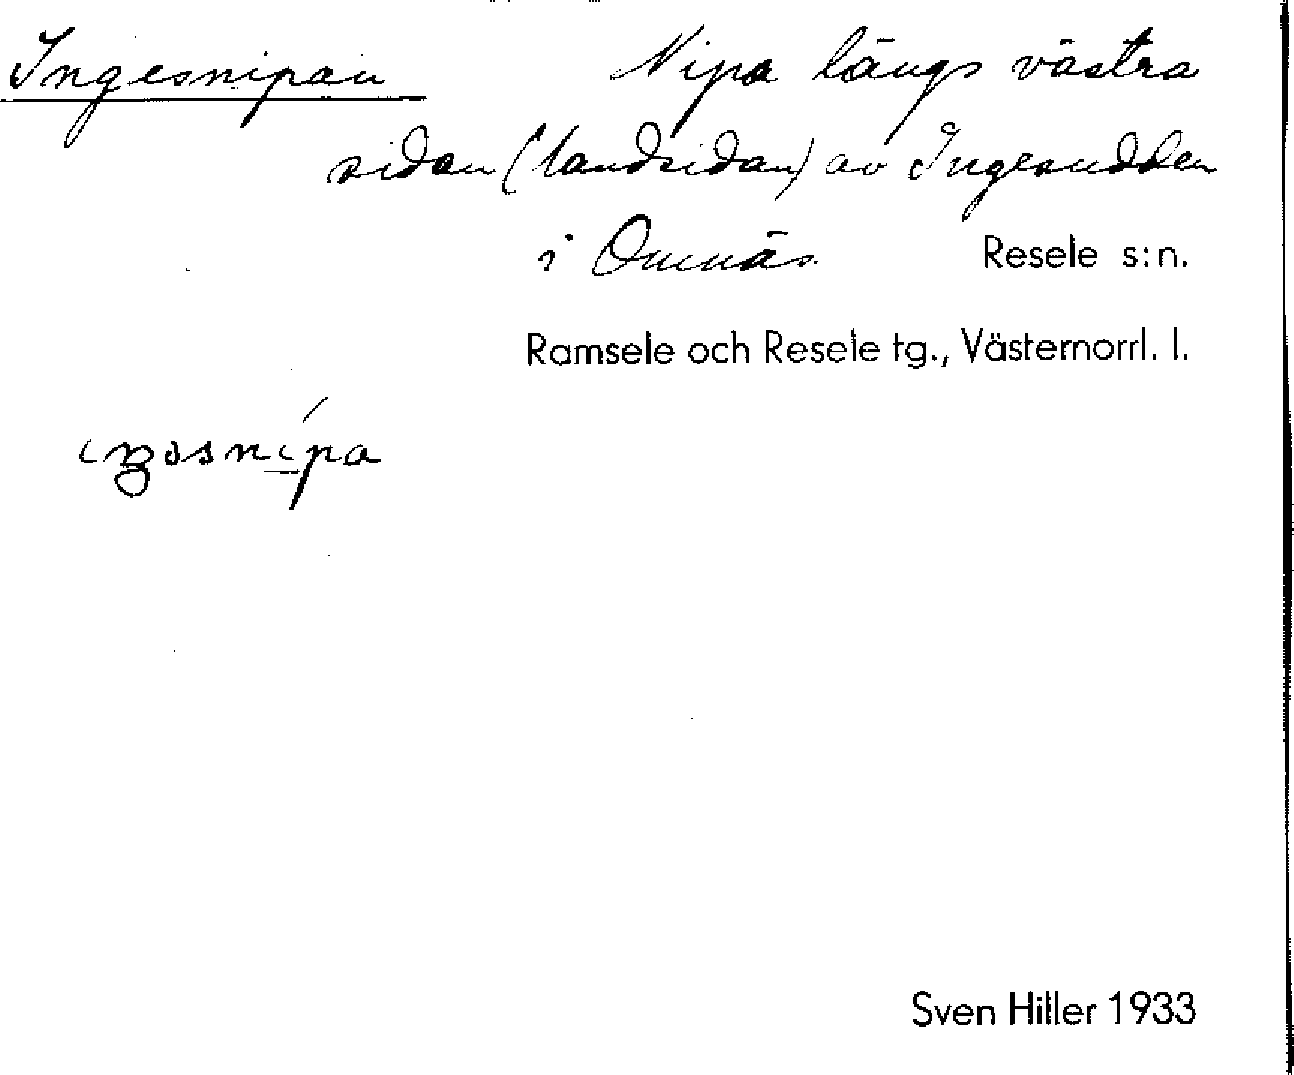 Ingesnipan Nipa längs västra
sidan (landsidan) av Ingesudden
i Omnäs. Resele s:n.
Ramsele och Resele tg., Västernorrl. l.
Sven Hiller 1933